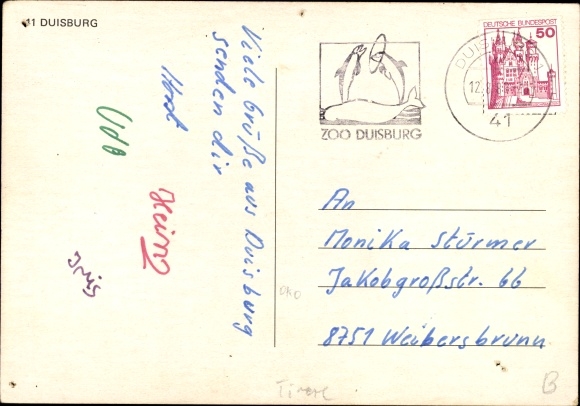 41 DUISBURG
Viele Grüße aus Duisburg
senden dir
Horst
Udo
Heinz
Iris
ZOO DUISBURG
DEUTSCHE BUNDESPOST
50
DUISBURG
12.
41
An
Monika Stürmer
Jakobgroßstr. 66
8751 Weibersbrunn
Tiere
B